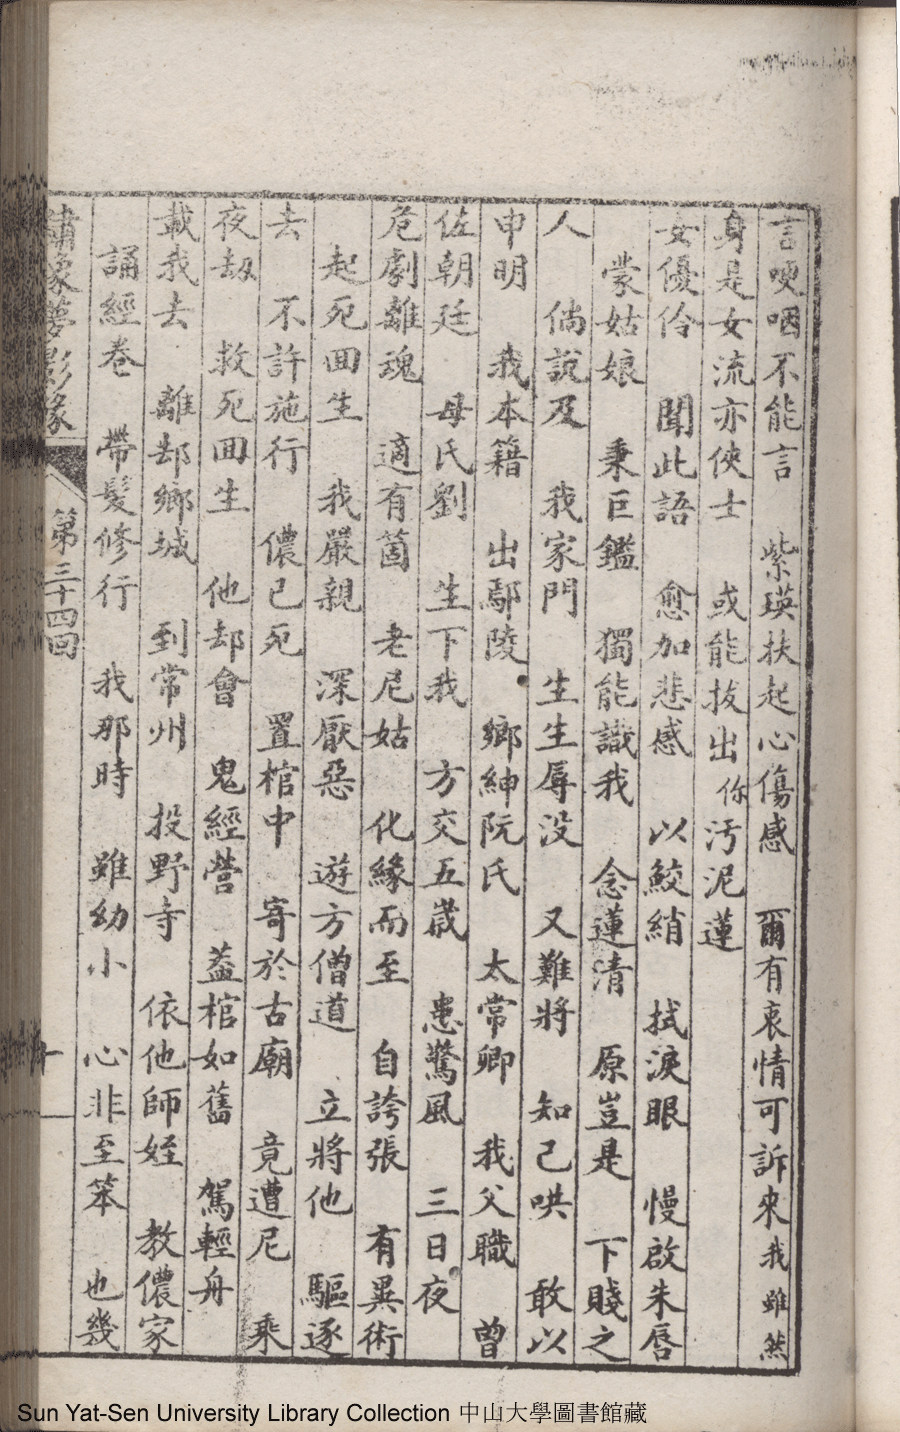 言哽咽不能言　紫瑛扶起心傷感　爾有衷情可訴來我雖然
身是女流亦俠士　或能拔出你汚泥蓮
女優伶　聞此語　愈加悲感　以鮫綃　拭淚眼　慢啟朱唇
蒙姑娘　秉巨鑑　獨能識我　念蓮清　原豈是　下賤之
人　倘說及　我家門　生生辱没　又難將　知己哄　敢以
申明　我本籍　出鄢陵　鄉紳阮氏　太常卿　我父職　曾
佐朝廷　母氏劉　生下我　方交五歲　患驚風　三日夜
危劇離魂　適有箇　老尼姑　化緣而至　自誇張　有異術
起死囬生　我嚴親　深厭惡　遊方僧道　立將他　驅逐
去　不許施行　儂已死　置棺中　寄於古廟　竟遭尼　乘
夜劫　救死囬生　他却會　鬼經營　葢棺如舊　駕輕舟
載我去　離却鄉城　到常州　投野寺　依他師姪　教儂家
誦經卷　帶髮修行　我那時　雖幼小　心非至笨　也幾
繡像夢影緣　第三十四回　十
Sun Yat-Sen University Library Collection 中山大學圖書館藏